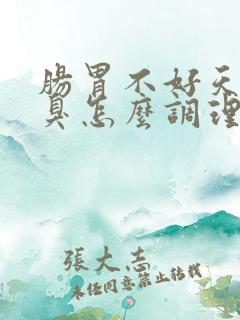 腸胃不好天
臭怎麼調理
張大志
未經同意禁止轉載